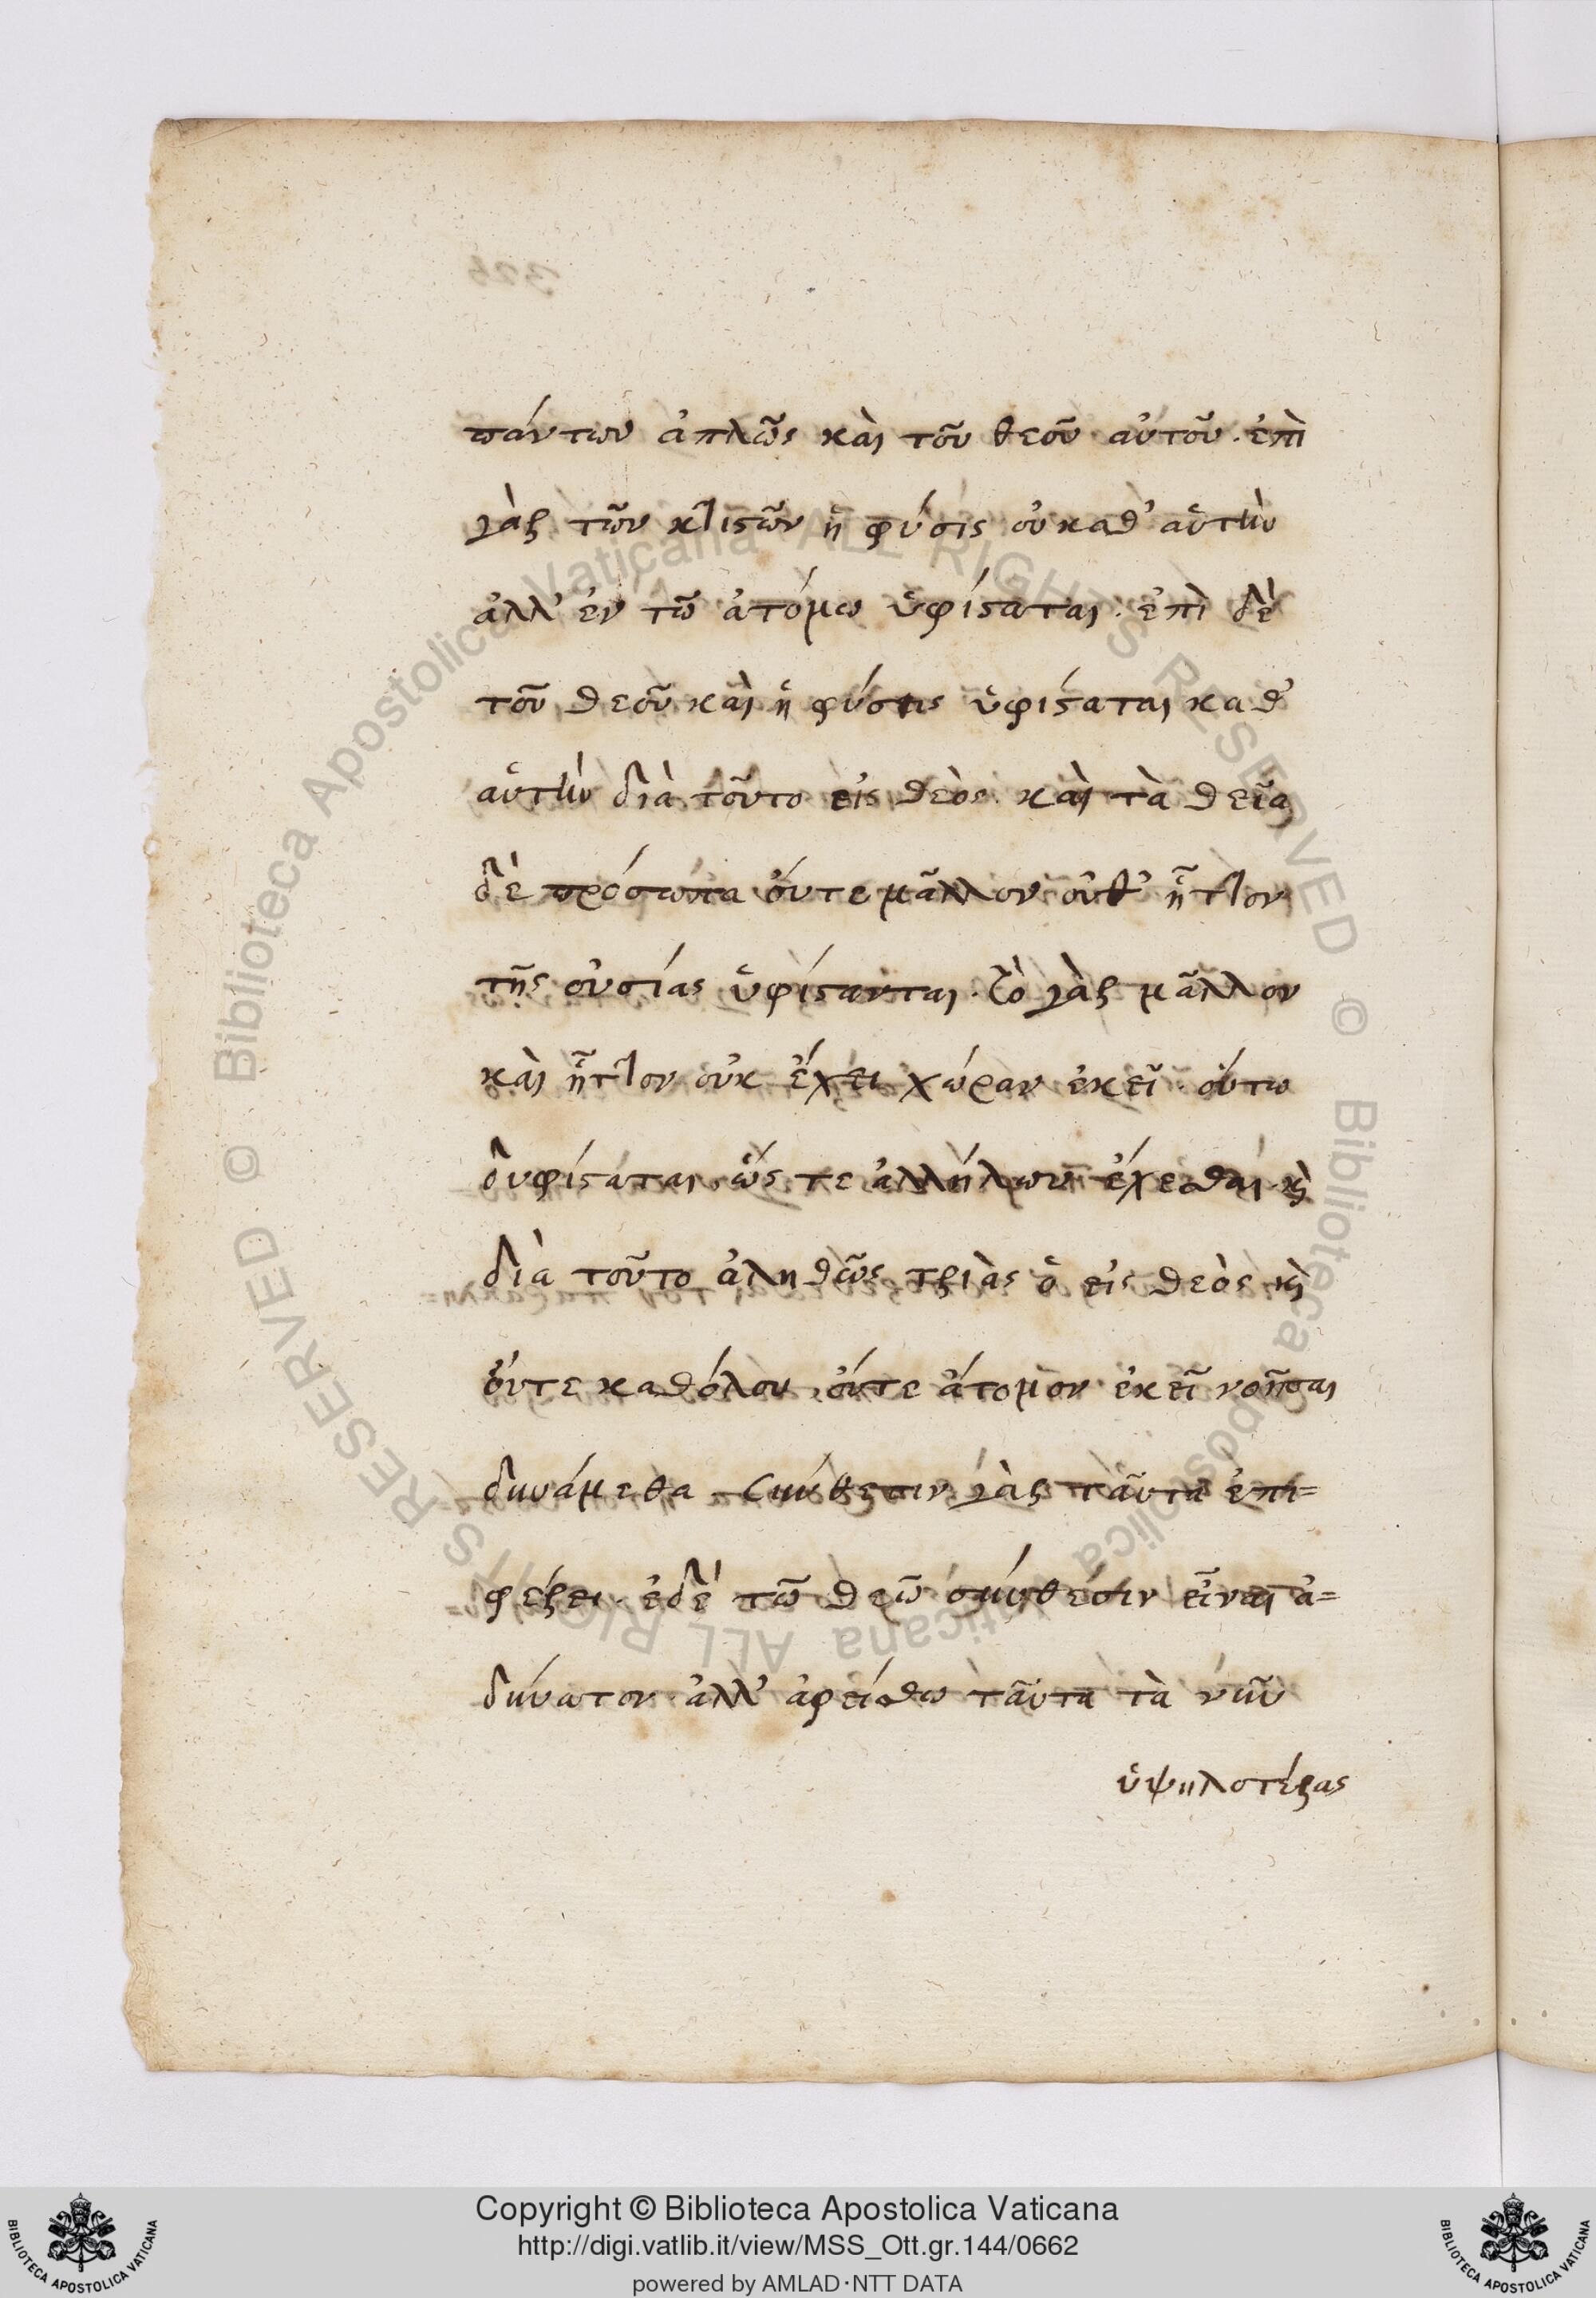 πάντων ἁπλῶς καὶ τοῦ θεοῦ αὐτοῦ. ἐπὶ
γὰρ τῶν κτιστῶν ἡ φύσις οὐ καθ' αὑτὴν
ἀλλ' ἐν τῶ ἀτόμω ὑφίσταται. ἐπὶ δὲ
τοῦ θεοῦ καὶ ἡ φύσις ὑφίσταται καθ'
αὑτὴν διὰ τοῦτο εἷς θεὸς. καὶ τὰ θεῖα
δὲ πρόσωπα οὔτε μᾶλλον οὐθ' ἧττον
τῆς οὐσίας ὑφίστανται. τὸ γὰρ μᾶλλον
καὶ ἧττον οὐκ ἔχει χώραν ἐκεῖ. οὕτω
δυφίσταται ὥστε ἀλλήλων ἔχεσθαι. καὶ
διὰ τοῦτο ἀληθῶς τριὰς ὁ εἷς θεὸς καὶ
οὔτε καθόλου οὔτε ἄτομον ἐκεῖ νοῆσαι
δυνάμεθα σύνθεσιν γὰρ ταῦτα ἐπι=
φέρει. ἐδὲ τῶ θεῶ σύνθεσιν εἶναι ἀ=
δύνατον. ἀλλ' ἀφείσθω ταῦτα τὰ νῦν
ὑψηλοτέρας
Copyright © Biblioteca Apostolica Vaticana
http://digi.vatlib.it/view/MSS_Ott.gr.144/0662
powered by AMLAD·NTT DATA